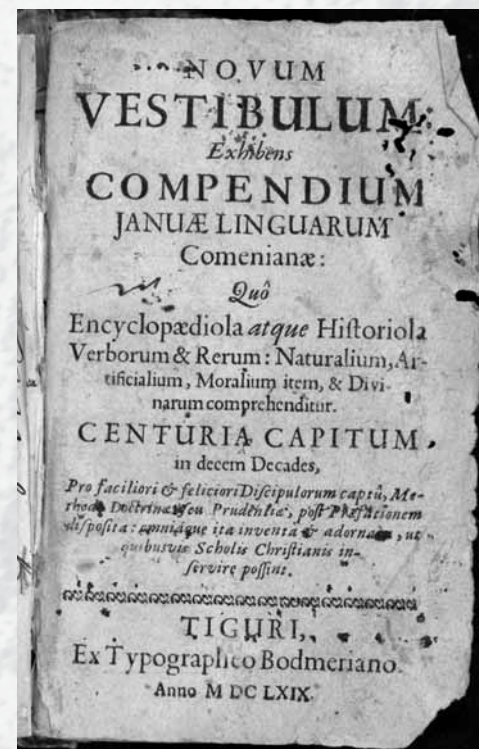 NOVUM
VESTIBULUM,
Exhibens
COMPENDIUM
JANUÆ LINGUARUM
Comenianæ:
Quô
Encyclopædiola atque Hiſtoriola
Verborum & Rerum: Naturalium, Ar-
tificialium, Moralium item, & Divi-
narum comprehenditur.
CENTURIA CAPITUM,
in decem Decades,
Pro faciliori & feliciori Diſcipulorum captû, Me-
thodi Doctrinæ ſeu Prudentiæ, poſt Præfationem
diſpoſita: omniaque ita inventa & adornata, ut
quibusvis Scholis Chriſtianis in-
ſervire poſſint.
TIGURI,
Ex Typographeo Bodmeriano.
Anno M DC LXIX.